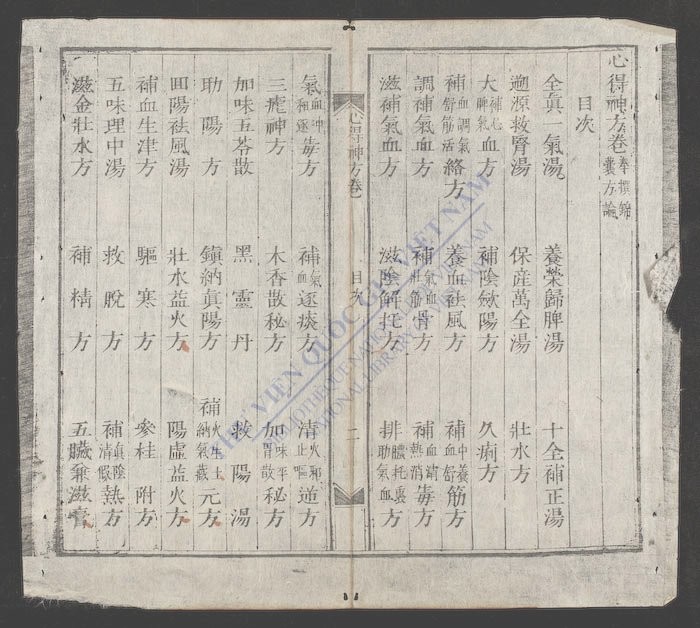 心得神方卷 奉撰錦囊方論
目次
全眞一氣湯 養榮歸脾湯 十全補正湯
遡源救腎湯 保産萬全湯 壯水方
大補心脾氣血方 補陰斂陽方 久痢方
補血調氣舒筋活絡方 養血祛風方 補中養血舒筋方
調補氣血方 補氣血壯筋骨方 補血清熱消毒方
滋補氣血方 滋陰解托方 排膿托裏助氣血方
心得神方卷 目次 二
氣血冲和逐毒方 補氣血逐痰方 清火和止嘔逆方
三瘧神方 木香散秘方 加味平胃散秘方
加味五苓散 黑靈丹 救陽湯
助陽方 鎭納眞陽方 補火生土納氣藏元方
回陽祛風湯 壯水益火方 陽虛益火方
補血生津方 驅寒方 參桂附方
五味理中湯 救脫方 補眞陰清假熱方
滋金壯水方 補精方 五臟兼滋膏
THƯ VIỆN QUỐC GIA VIỆT NAM
BIBLIOTHÈQUE NATIONALE DU VIETNAM
NATIONAL LIBRARY OF VIETNAM